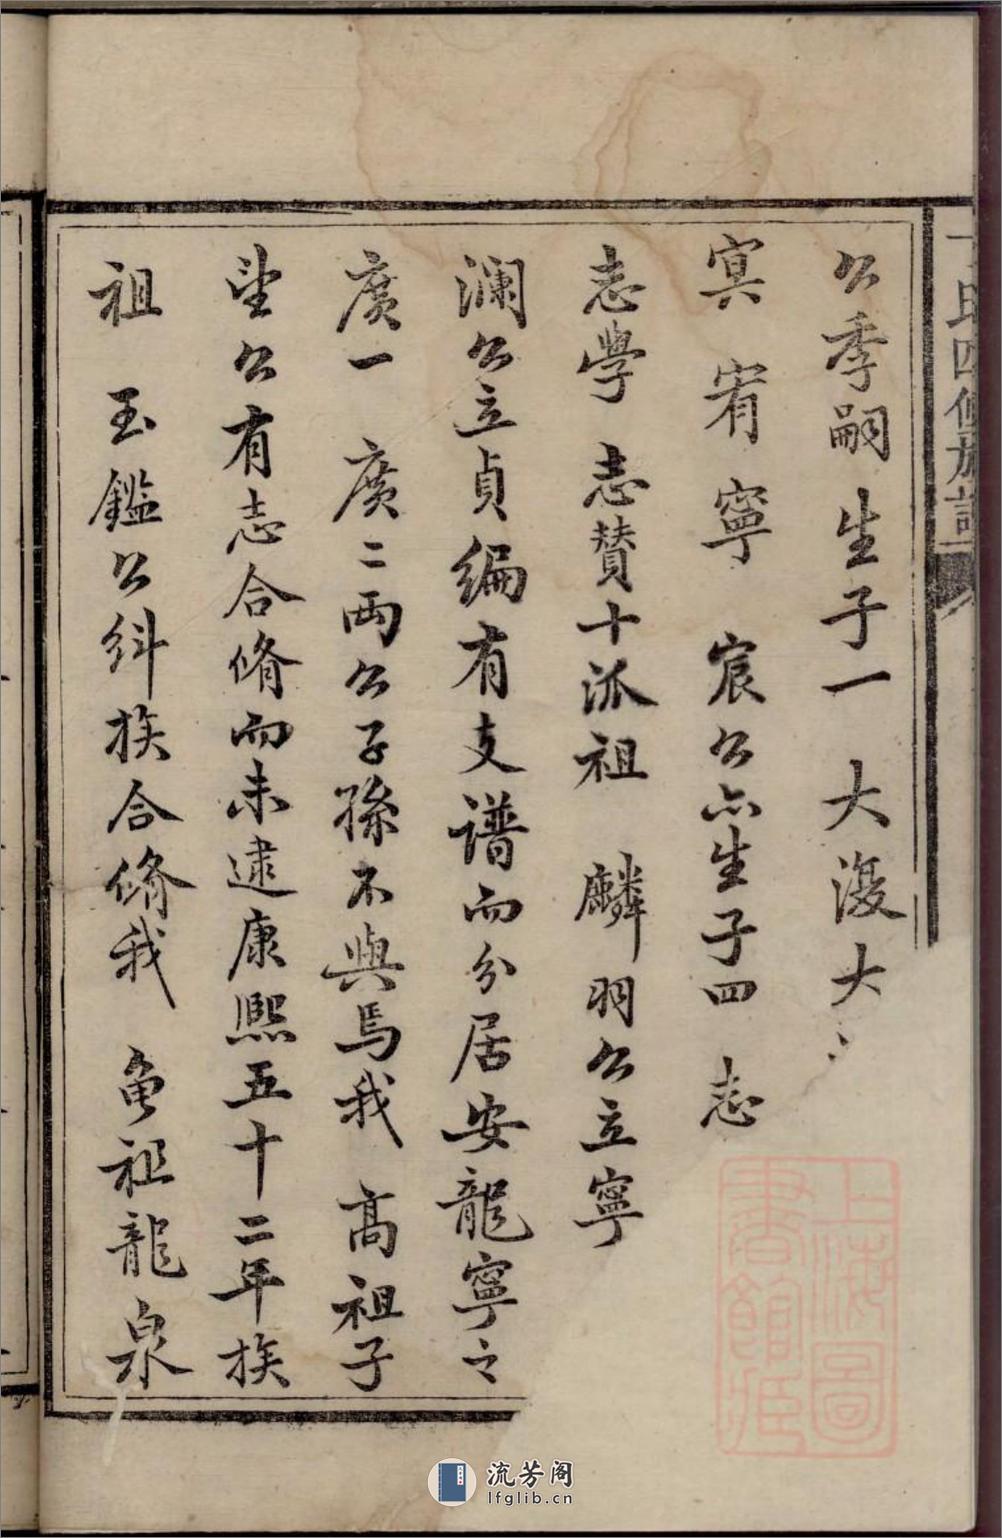 氏四修族譜
公季嗣生子一　大漫大
寘　宥寧　宸公亦生子四　志
志學　志贊十派祖　麟羽公立寧
瀾公立貞編有支譜而分居安龍寧之
廣一　廣二兩公子孫不與焉我　高祖子
望公有志合脩而未逮康熙五十二年族
祖　玉鑑公糾族合脩我　龟祖龍泉
上海圖
書館藏
流芳阁
lfglib.cn